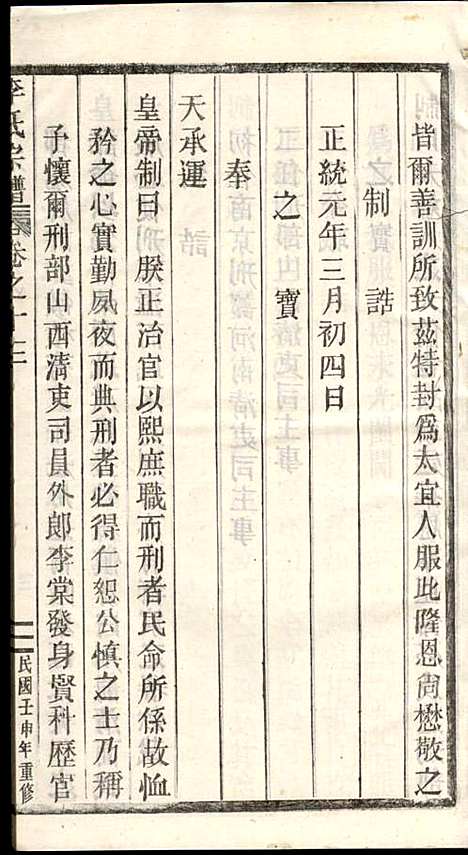 皆爾善訓所致茲特封為太宜人服此隆恩尚懋敬之
制誥
正統元年三月初四日
之寶
奉
天承運
皇帝制曰朕正治官以熙庶職而刑者民命所係故恤
矜之心實勤夙夜而典刑者必得仁恕公慎之士乃稱
予懷爾刑部山西清吏司員外郎李棠發身賢科歷官
李氏宗譜 卷之十三
民國壬申年重修